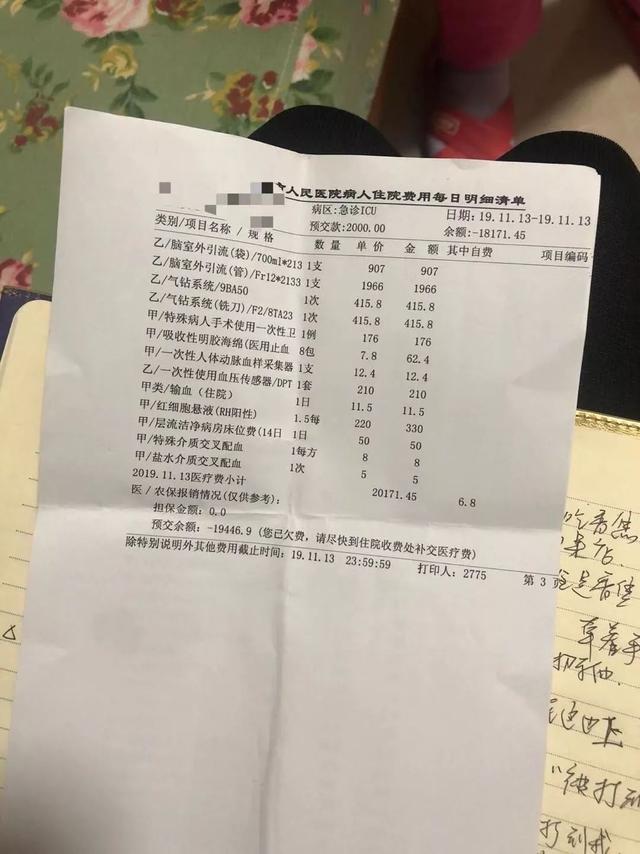 人民医院病人住院费用每日明细清单
病区:急诊ICU 日期:19.11.13-19.11.13
预交款:2000.00 余额:-18171.45
类别/项目名称/规格 数量 单价 金额 其中自费 项目编码
乙/脑室外引流(袋)/700ml*213 1支 907 907
乙/脑室外引流(管)/Fr12*2133 1支 1966 1966
乙/气钻系统/9BA50 1次 415.8 415.8
乙/气钻系统(铣刀)/F2/8TA23 1次 415.8 415.8
甲/特殊病人手术使用一次性卫 1例 176 176
甲/吸收性明胶海绵(医用止血 8包 7.8 62.4
甲/一次性人体动脉血样采集器 1支 12.4 12.4
乙/一次性使用血压传感器/DPT 1套 210 210
甲类/输血(住院) 1日 11.5 11.5
甲/红细胞悬液(RH阳性) 1.5每 220 330
甲/层流洁净病房床位费(14日 1日 50 50
甲/特殊介质交叉配血 1每方 8 8
甲/盐水介质交叉配血 1次 5 5
2019.11.13医疗费小计 20171.45 6.8
医/农保报销情况(仅供参考):
担保金额:0.0
预交余额:-19446.9(您已欠费,请尽快到住院收费处补交医疗费)
除特别说明外其他费用截止时间:19.11.13 23:59:59 打印人:2775 第 3 页
香蕉
店.
是香蕉
拿着手
"被打到
打到我